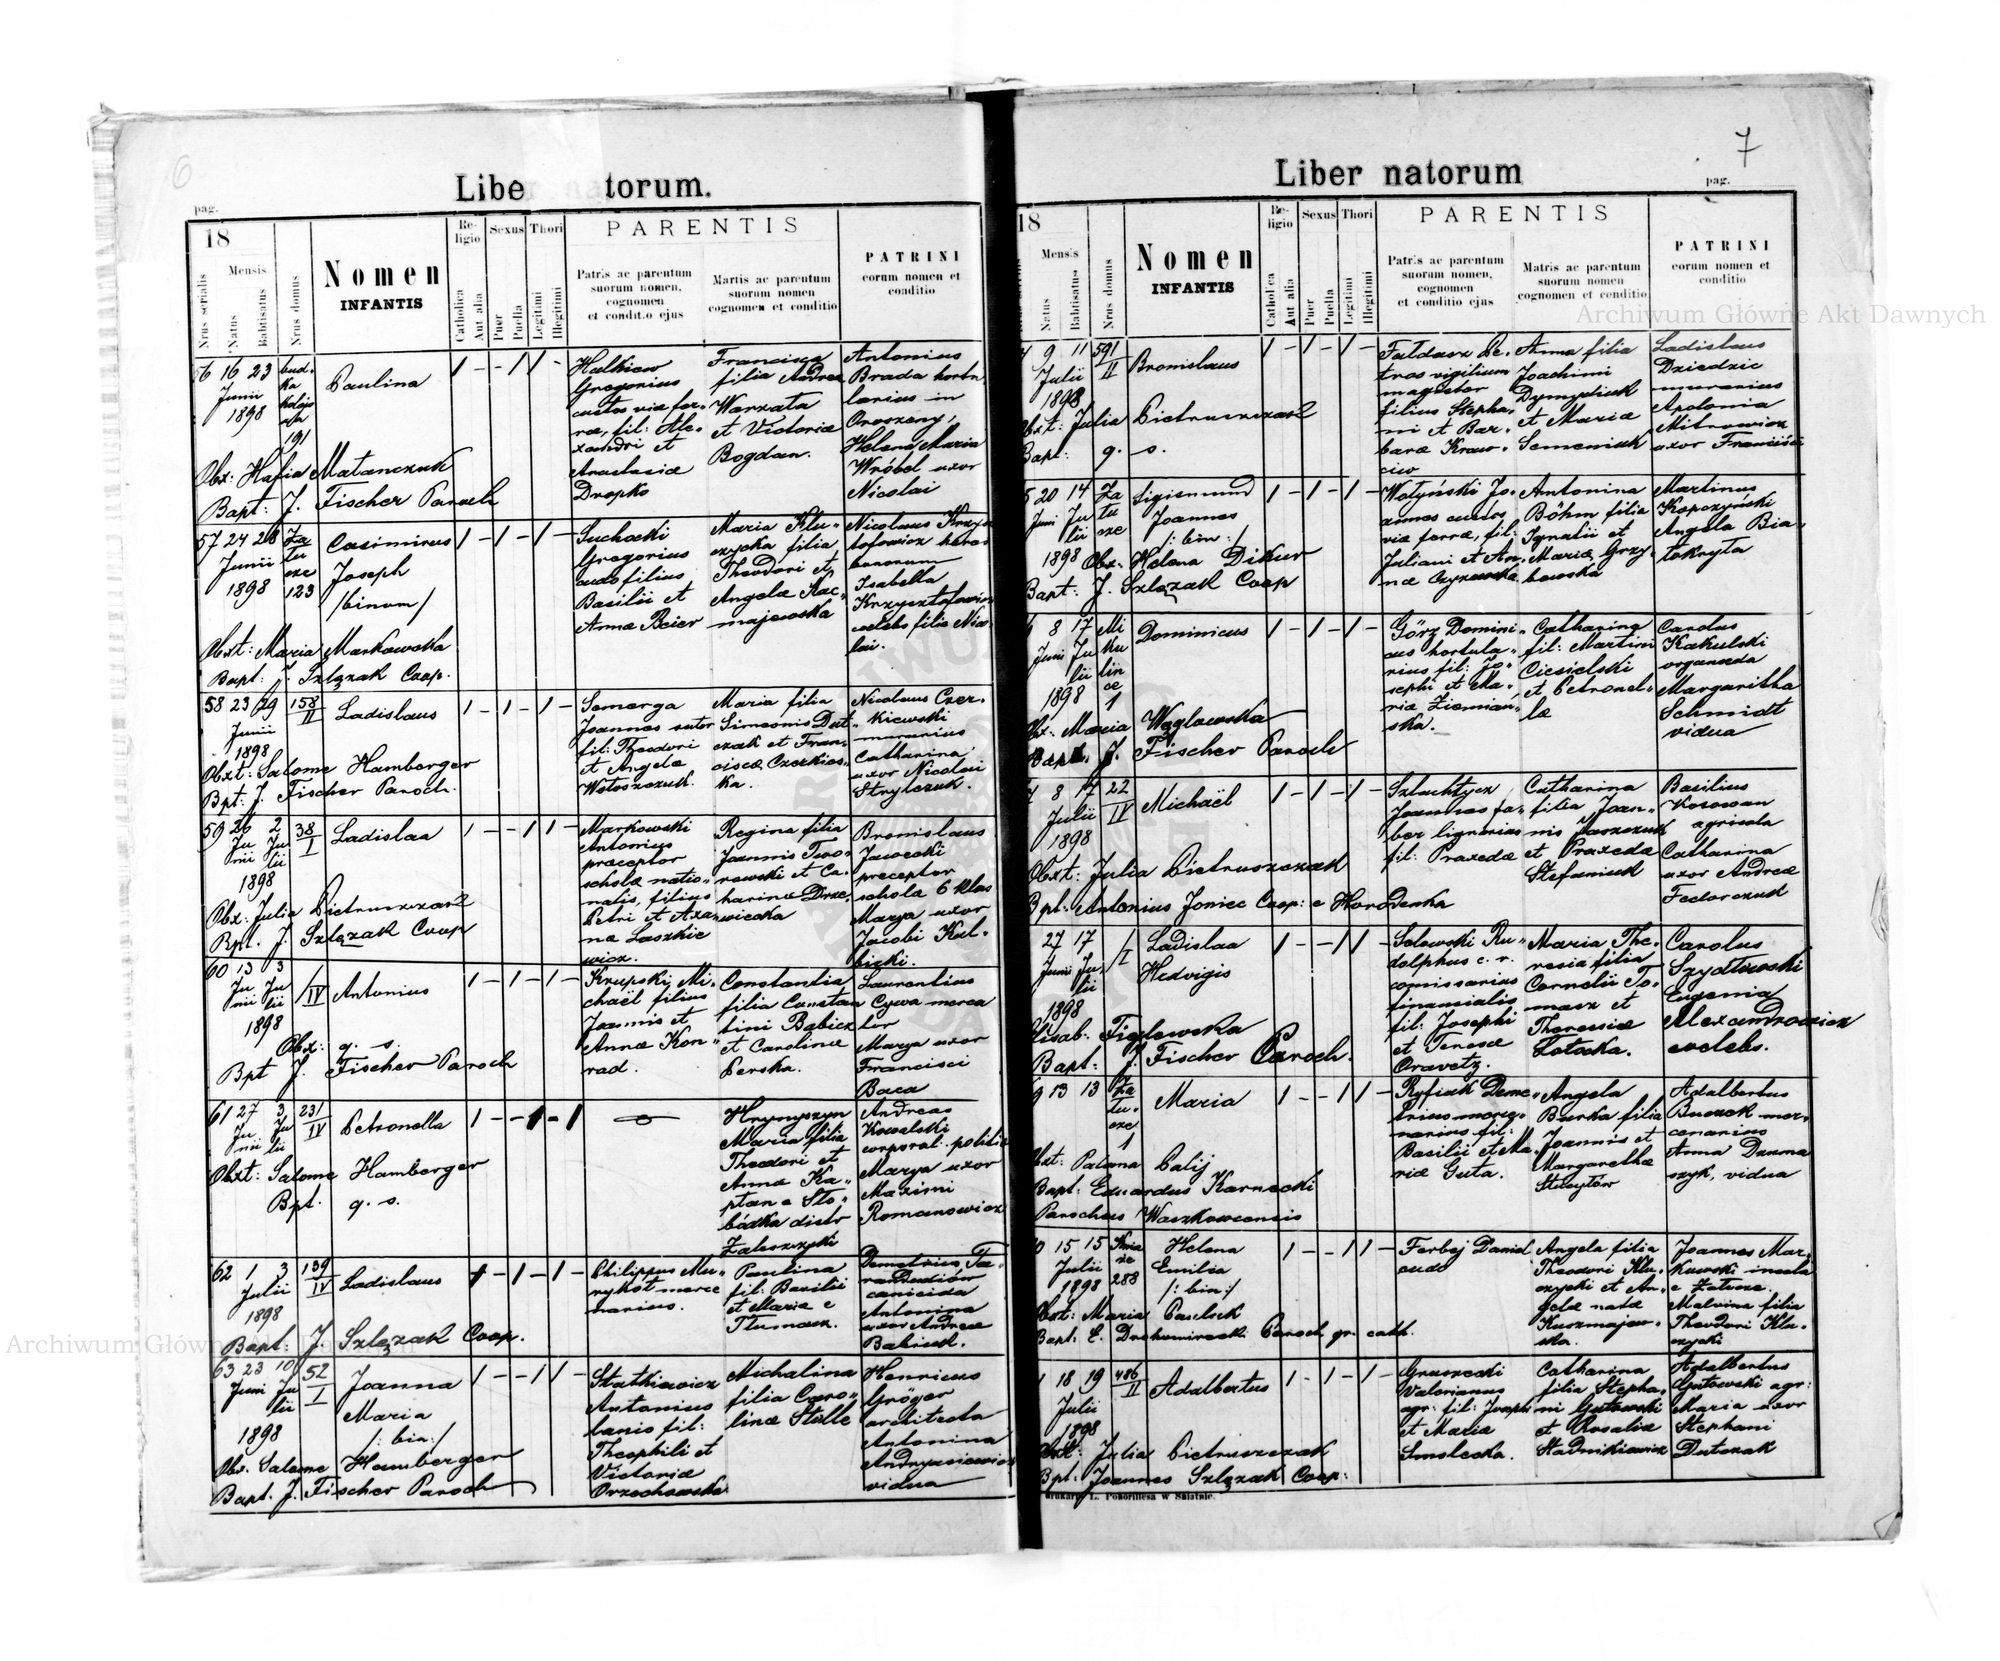 6
Liber natorum.
pag.
18
Nrus serialis
Mensis
Natus
Babtisatus
Nrus domus
Nomen
INFANTIS
Religio
Catholica
Aut alia
Sexus
Puer
Puella
Thori
Legitimi
Illegitimi
PARENTIS
Patris ac parentum
suorum nomen,
cognomen
et conditio ejus
Martis ac parentum
suorum nomen
cognomen et conditio
PATRINI
eorum nomen et
conditio
56 16 23
Junii
1898
191
Paulina
Gregorius
Anastasiæ
Dropko
Francisca
filia Andreæ
Warzata
et Victoriæ
Bogdan.
Antonius
Brada
Helena Maria
Wróbel uxor
Nicolai
Obx: Hafia Matanczuk
Bapt: J. Fischer Paroch
57 24 28
Junii
1898
Za
tu
cze
123
Casimirus
Joseph
/binom/
Suchocki
Gregorius
filius
Basilii et
Annæ Beier
Maria Klu-
czycka filia
Theodori et
Angelæ Kac-
majewska
Nicolaus Krzysz
tofowicz heres
bonorum
Isabella
Krzysztofowicz
cælebs, filia Nico-
lai.
Obxt: Maria Markowska
Bapt: J. Szlęzak Coop.
58 23 29
Junii
1898
158
II
Ladislaus
Semerga
Joannes sutor
fil: Theodori
et Angelæ
Wołoszczuk.
Maria filia
Simeonis Dut-
czak et Fran-
ciscæ Czerkies-
ka.
Nicolaus Czer-
kiewski
murarius
Catharina
uxor Nicolai
Strylczuk.
Obxt: Salome Hamberger
Bpt: J. Fischer Paroch.
59 26 2
Ju Ju
nii lii
1898
38
I
Ladislaa
Markowski
Antonius
præceptor
scholæ natio-
nalis, filius
Petri et
Laszkie
wicz.
Regina filia
Joannis Two-
rowski et Ca-
harinæ Drze-
wiecka
Bronislaus
Jaworski
preceptor
schola 6 klas
Marya uxor
Jacobi Kul-
bicki.
Obx: Julia Pietruszczak
Bpt. J. Szlęzak Coop
60 13 3
Ju Ju
nii lii
1898
IV
Antonius
Krupski Mi-
chaël filius
Joannis et
Annæ Kon-
rad.
Constantia
filia Constan
tini Babicz
et Carolinæ
Perska.
Laurentius
Cywa merca
tor
Marya uxor
Francisci
Baca
Obx: q. s.
Bpt J. Fischer Paroch
61 27 3
Ju Ju
nii lii
231
IV
Petronella
Hrynyszyn
Maria filia
Theodori et
Annæ Ka-
ptan e Sło-
bódka distr
Zaleszczyki
Andreas
Kowalski
corporal. politiæ
Marya uxor
Maximi
Romanowicz
Obxt: Salome Hamberger
Bpt. q. s.
62 1 3
Julii
1898
139
IV
Ladislaus
Philippus Mu-
rykot merce
narius.
Paulina
fil: Basilii
et Mariæ e
Tłumacz.
Demetrius
canicida
Antonina
uxor Andreæ
Babiuk.
Bapt: J. Szlęzak Coop.
63 23 10
Junii Ju
lii
1898
52
I
Joanna
Maria
/: bin:/
Statkiewicz
Antonius
lanio fil:
Theophili et
Victoriæ
Orzechowska
Michalina
filia Caro-
linæ Stülle
Henricus
Gröger
architecta
Antonina
Andrysiewicz
vidua
Obx. Salome Hamberger
Bapt. J. Fischer Paroch
7
Liber natorum
pag.
18
Mensis
Natus
Babtisatus
Nrus domus
Nomen
INFANTIS
Religio
Catholica
Aut alia
Sexus
Puer
Puella
Thori
Legitimi
Illegitimi
PARENTIS
Patris ac parentum
suorum nomen,
cognomen
et conditio ejus
Matris ac parentum
suorum nomen
cognomen et conditio
PATRINI
eorum nomen et
conditio
9 11
Julii
1898
591
II
Bronislaus
Pe-
trus vigilium
magister
filius Stepha-
ni et Bar-
baræ Kraw-
ciw
Anna filia
Joachimi
Dympliuk
et Mariæ
Semeniuk
Ladislaus
Dziedzic
murarius
Apolonia
Mitrowicz
uxor Francisci
Obxt: Julia Pietruszczak
Bapt: q. s.
20 14
Junii Ju
lii
1898
Za
tu
cze
Sigismund
Joannes
/: bin:/
Wołyński Jo-
annes custos
viæ ferræ, fil:
Juliani et An-
næ
Antonina
Böhm filia
Ignatii et
Mariæ Grzy-
bowska
Martinus
Kopczyński
Angela Bia-
łokryta
Obx. Helena Dikur
Bapt: J. Szlęzak Coop
8 17
Junii Ju
lii
1898
Mi
ku
lin
ce
1
Dominicus
Görz Domini-
cus hortula-
rius fil: Jo-
sephi et Ma-
riæ Ziemiań-
ska.
Catharina
fil: Martini
Ciesielski
et Petronel-
læ
Carolus
Kakulski
organoeda
Margaritha
Schmidt
vidua
Obx: Maria Węglowska
Bapt. J. Fischer Paroch
8 17
Julii
1898
22
IV
Michaël
Szlachtycz
Joannes fa-
ber lignarius
fil: Praxedæ
Catharina
filia Joan-
nis
et Praxedæ
Stefaniuk
Basilius
Kosowan
agricola
Catharina
uxor Andreæ
Fedorczuk
Obxt: Julia Pietruszczak
Bpt: Antonius Joniec Coop: e Horodenka
27 17
Junii Ju
lii
1898
I
Ladislaa
Hedvigis
Solowski Ru-
dolphus c. r.
comissarius
financialis
fil: Josephi
et Teresæ
Oravetz.
Maria The-
resia filia
Cornelii To-
masz et
Theresiæ
Łotocka.
Carolus
Szydłowski
Eugenia
Alexandrowicz
cælebs.
Elisab. Figlewska
Bapt: J. Fischer Paroch.
13 13
Za
tu-
cze
1
Maria
Ryfiak Deme-
trius merce-
narius fil:
Basilii et Ma-
riæ Guta.
Angela
Burka filia
Joannis et
Margarethæ
Adalbertus
Buczek mer-
cenarius
Anna Dzuma
czyk, vidua
Obxt: Palij
Bapt: Eduardus Karnecki
Parochus Waszkowcensis
15 15
Julii
1898
288
Helena
Emilia
/: bin:/
Ferbej Daniel
Angela filia
Theodori Klu-
czycki et An-
gelæ natæ
Kuczmajew-
ska.
Joannes Mar-
kowski incola
e Załucze
Malvina filia
Theodori Klu-
czycki
Obxt: Maria Pauluk
Bapt. E. Drohomirecki Paroch gr. cath.
18 19
Julii
1898
486
II
Adalbertus
Gruszecki
Valerianus
agr: fil: Josephi
et Maria
Smolecka.
Catharina
filia Stepha-
ni Gutowski
et Rosaliæ
Stadnikiewicz
Adalbertus
Gutowski agr:
Maria uxor
Stephani
Dutczak
Obxt: Julia Pietruszczak
Bpt: Joannes Szlęzak Coop:
Drukarn. L. Pokorillesa w Śniatnie.
Archiwum Główne Akt Dawnych
Archiwum Główne Akt Dawnych